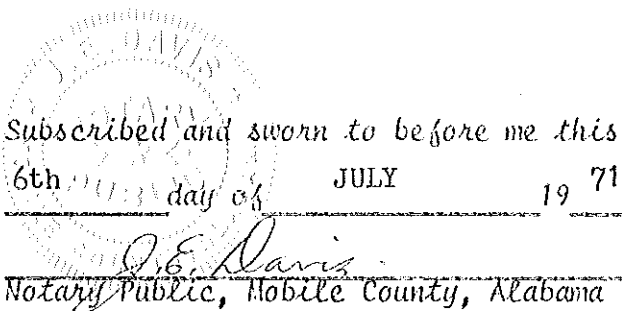 J. E. DAVIS
NOTARY
PUBLIC
Subscribed and sworn to before me this
6th day of JULY 19 71
J. E. Davis
Notary Public, Mobile County, Alabama